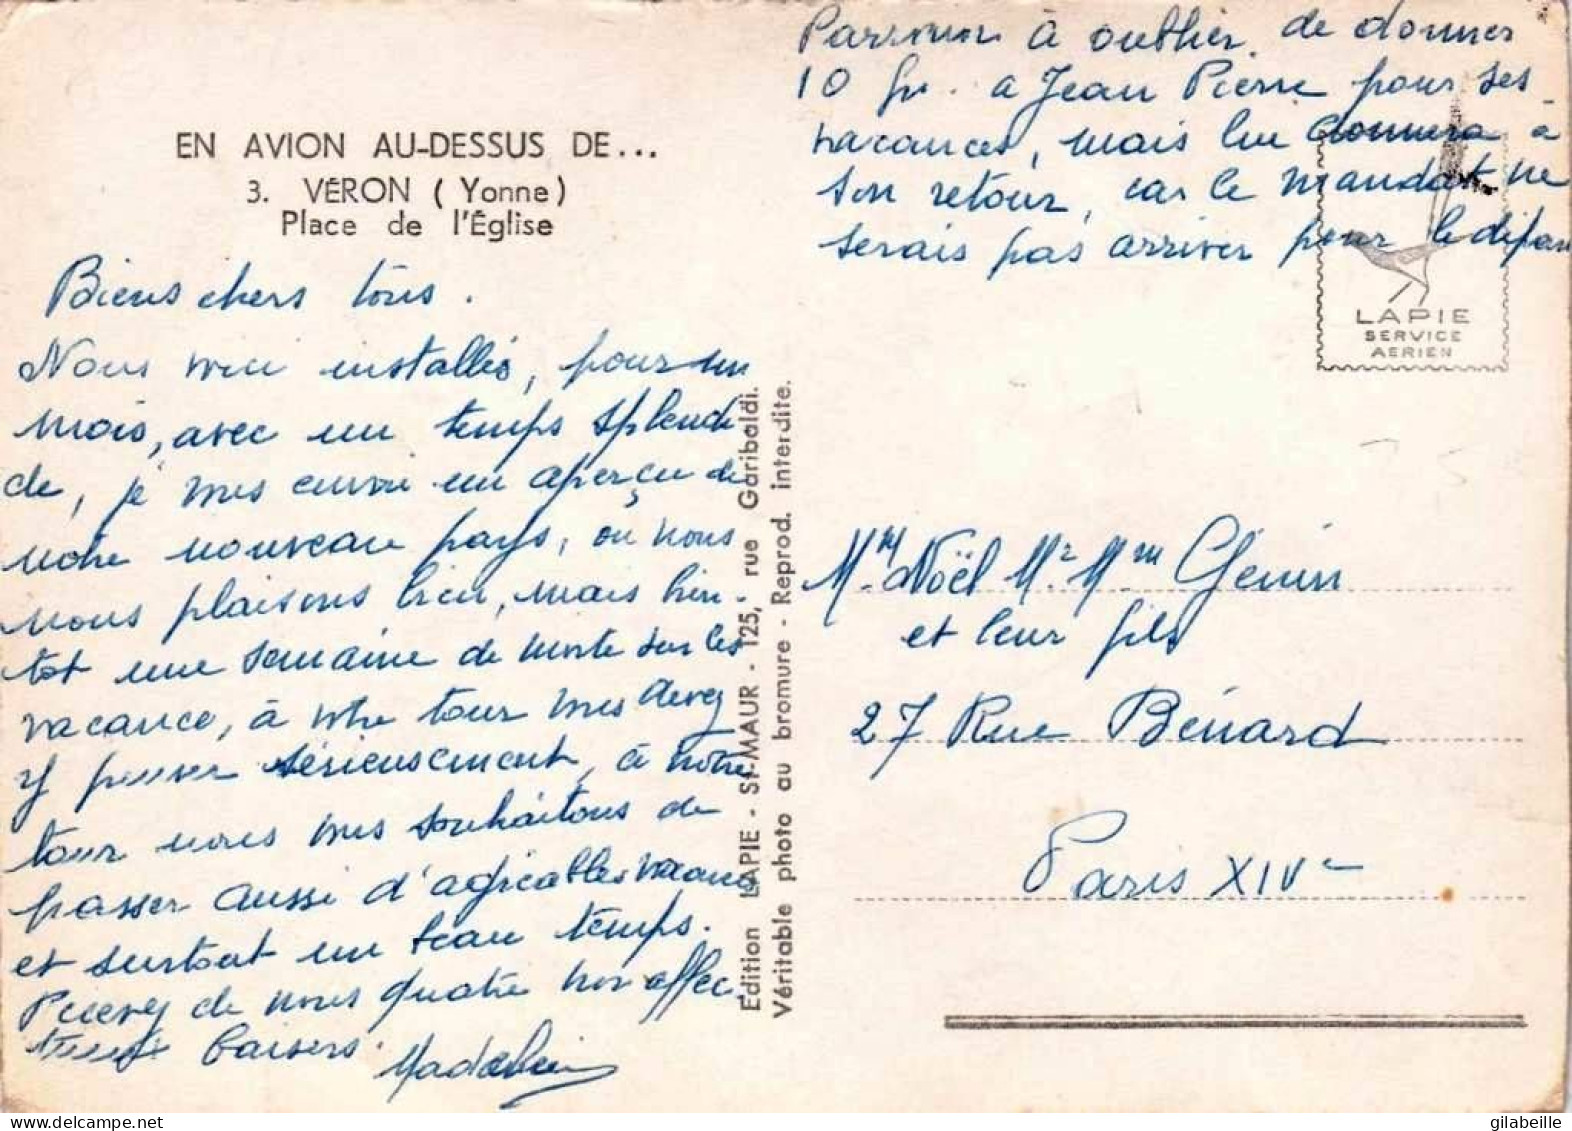 EN AVION AU-DESSUS DE...
3. VÉRON (Yonne)
Place de l'Église
Biens chers tous.
Nous voici installés, pour un
mois, avec un temps splendi-
de, je vous envoie un aperçu de
notre nouveau pays, où nous
nous plaisons bien, mais bien-
tot une semaine de moins sur les
vacance, à votre tour vous devez
y penser sérieusement, à notre
tour nous vous souhaitons de
passer aussi d'agréables vacances
et surtout un beau temps.
Recevez de nous quatre nos affec
tueux baisers. Madeleine
Edition LAPIE - St-MAUR - 125, rue Garibaldi.
Véritable photo au bromure - Reprod. interdite.
Parrain à oublier de donner
10 fr. a Jean Pierre pour ses
vacances, mais lui donnera a
son retour, car le mandat ne
serais pas arriver pour le dépar
LAPIE
SERVICE
AERIEN
Mme Noël Mr Mme Génin
et leur fils
27 Rue Bénard
Paris XIVe
gilabeille